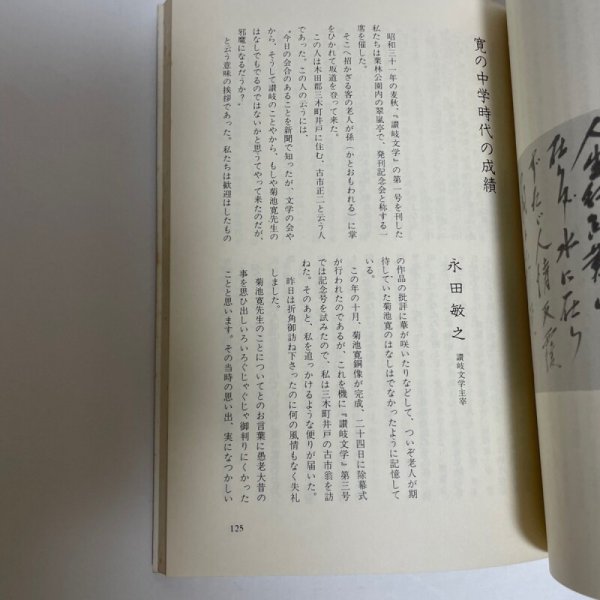 寛の中学時代の成績
永田敏之
讃岐文学主宰
昭和三十一年の麦秋、『讃岐文学』の第一号を刊した
私たちは栗林公園内の翠嵐亭で、発刊記念会と称する一
席を催した。
そこへ招かざる客の老人が孫（かとおもわれる）に掌
をひかれて坂道を登って来た。
この人は木田郡三木町井戸に住む、古市正二と云う人
であった。この人の云うには、
“今日の会合のあることを新聞で知ったが、文学の会や
から、そうして讃岐のことやから、もしや菊池寛先生の
はなしでもでるのではないかと思うてやって来たのだが、
邪魔になるだろうか？”
と云う意味の挨拶であった。私たちは歓迎はしたもの
の作品の批評に華が咲いたりなどして、ついぞ老人が期
待していた菊池寛のはなしはでなかったように記憶して
いる。
この年の十月、菊池寛銅像が完成、二十四日に除幕式
が行われたのであるが、これを機に『讃岐文学』第三号
では記念号を試みたので、私は三木町井戸の古市翁を訪
ねた。そのあと、私を追っかけるような便りが届いた。
昨日は折角御訪ね下さったのに何の風情もなく失礼
しました。
菊池寛先生のことについてとのお言葉に愚老大昔の
事を思ひ出しいろいろぐじゃぐじゃ御判りにくかった
ことと思います。その当時の思い出、実になつかしい
125